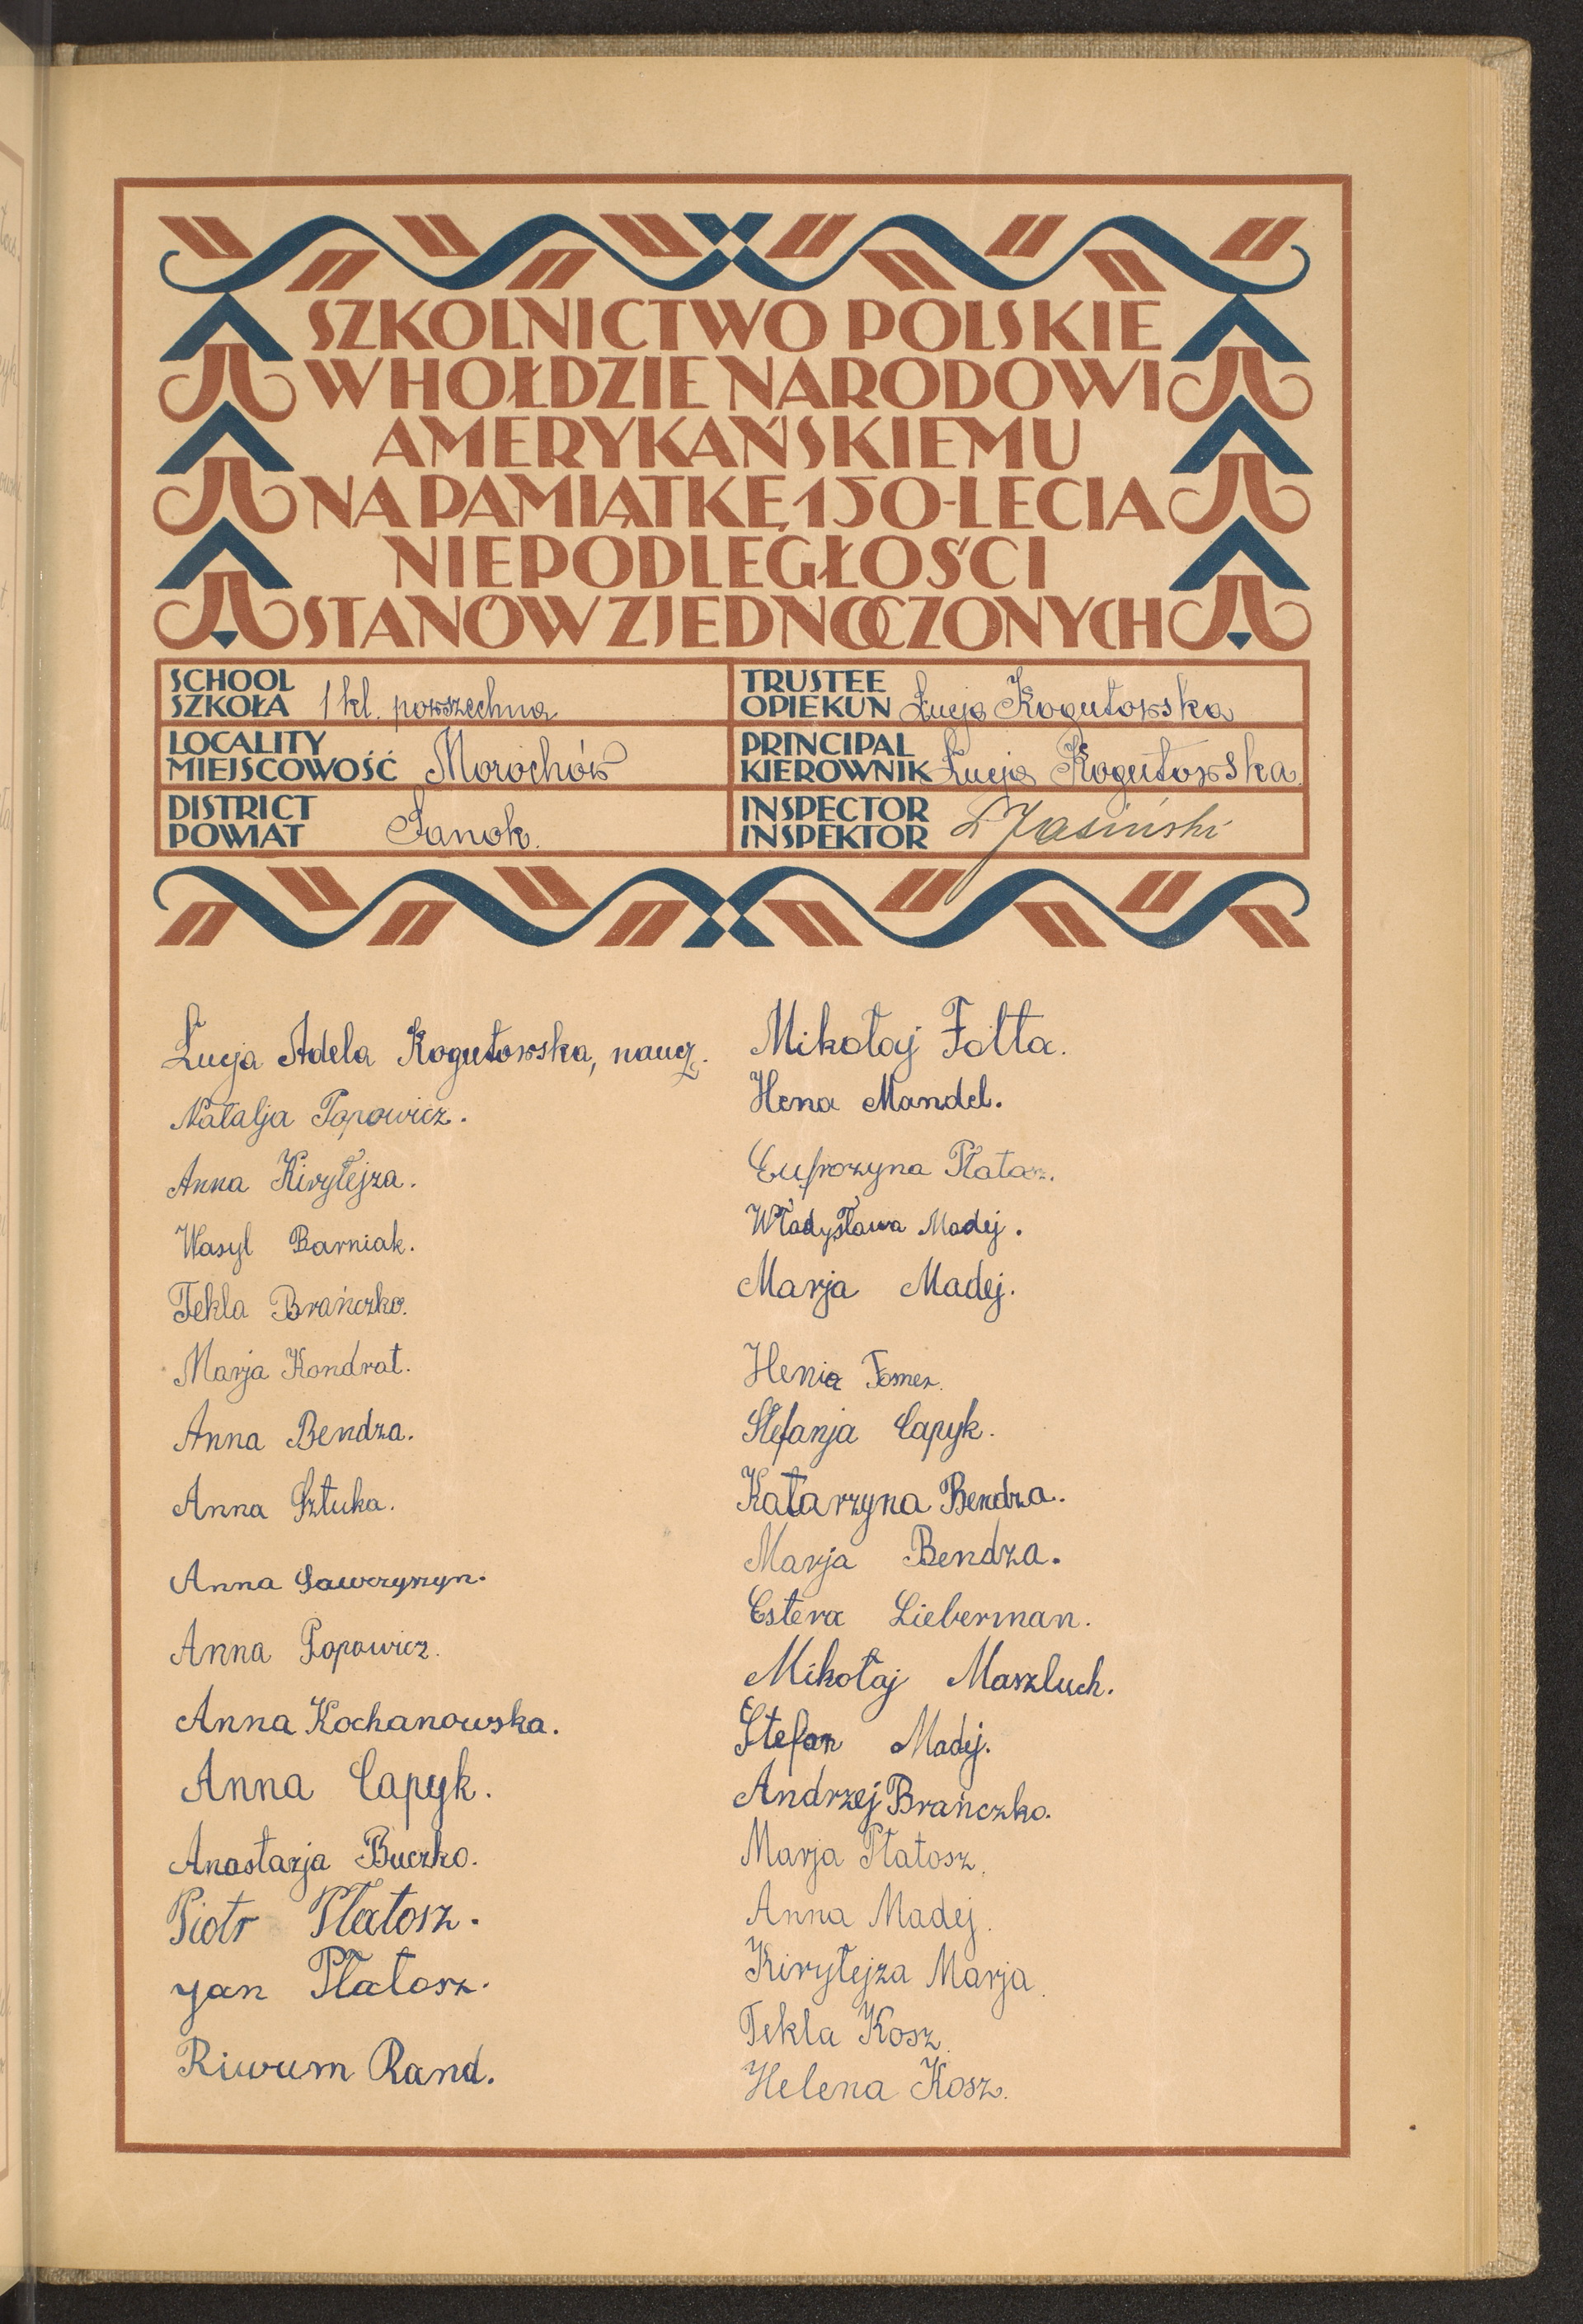 SZKOLNICTWO POLSKIE
W HOŁDZIE NARODOWI
AMERYKAŃSKIEMU
NA PAMIĄTKĘ 150-LECIA
NIEPODLEGŁOŚCI
STANÓW ZJEDNOCZONYCH
SCHOOL
SZKOŁA 1 kl. powszechna
TRUSTEE
OPIEKUN Łucja Kogutowska
LOCALITY
MIEJSCOWOŚĆ Morochów
PRINCIPAL
KIEROWNIK Łucja Kogutowska
DISTRICT
POWIAT Sanok.
INSPECTOR
INSPEKTOR Jasiński
Łucja Adela Kogutowska, naucz.
Natalja Popowicz.
Anna Kiryłejza.
Wasyl Barniak.
Tekla Brańczko.
Marja Kondrat.
Anna Bendza.
Anna Sztuka.
Anna Ławryszyn.
Anna Popowicz.
Anna Kochanowska.
Anna Capyk.
Anastazja Buczko.
Piotr Płatosz.
Jan Płatosz.
Riwum Rand.
Mikołaj Fołta.
Hena Mandel.
Eufrozyna
Władysława Madej.
Marja Madej.
Henia
Stefanja Capyk.
Katarzyna Bendza.
Marja Bendza.
Estera Lieberman.
Mikołaj Maszluch.
Stefan Madej.
Andrzej Brańczko.
Marja Płatosz.
Anna Madej.
Kiryłejza Marja.
Tekla Kosz.
Helena Kosz.